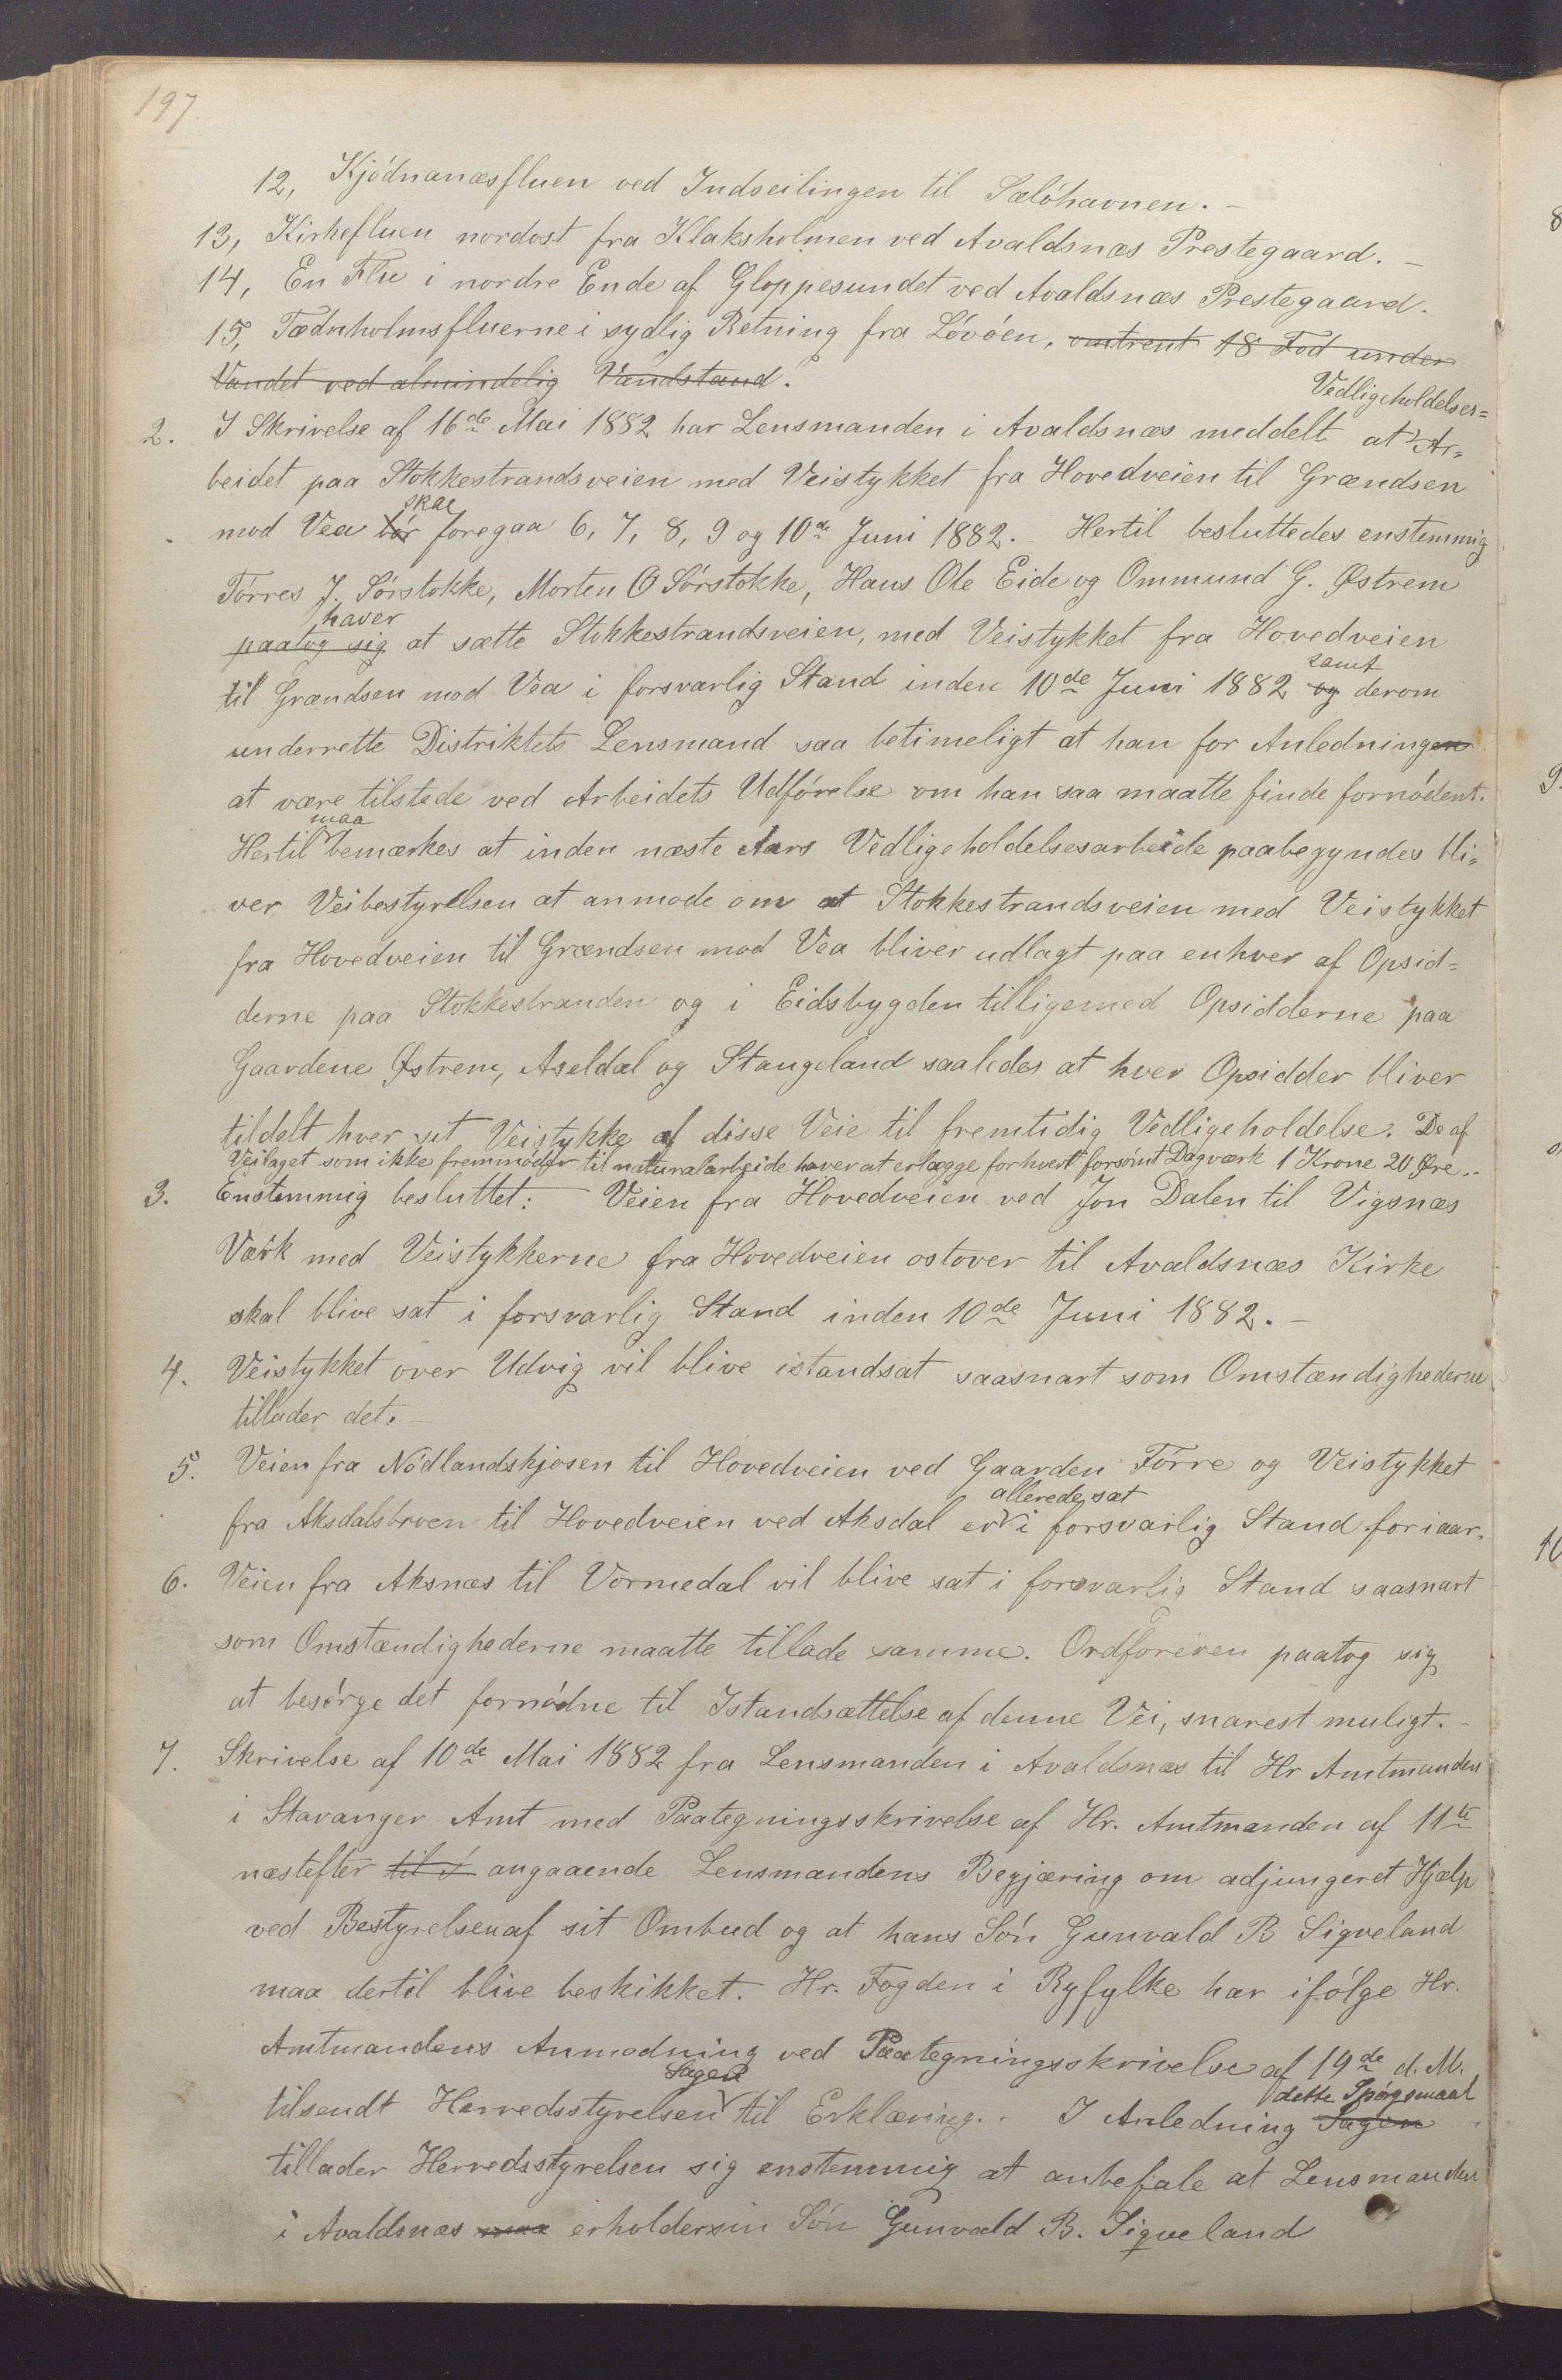 197.
12, Kjódnanæsfluen ved Indseilingen til Sælóhavnen. –
13, Kirkefluen nordost fra Klaksholmen ved Avaldsnæs Prestegaard. –
14, En Flu i nordre Ende af Gloppesundet ved Avaldsnæs Prestegaard.
15, Tædnholmsfluerne i sydlig Retning fra Lóvóen, omtrent 18 Fod under
Vandet ved almindelig Vandstand.
Vedligeholdelses=
2. I Skrivelse af 16de Mai 1882 har Lensmanden i Avaldsnæs meddelt at Ar=
beidet paa Stokkestrandsveien med Veistykket fra Hovedveien til Grændsen
skal
mod Vea bór foregaa 6, 7, 8, 9 og 10de Juni 1882. – Hertil besluttedes enstemmig
Tórres J. Sórstokke, Morten O Sórstokke, Hans Ole Eide og Ommund G. Østrem
haver
paatog sig at sætte Stokkestrandsveien, med Veistykket fra Hovedveien
samt
til Grændsen mod Vea i forsvarlig Stand inden 10de Juni 1882 og derom
underrette Distriktets Lensmand saa betimeligt at han for Anledningen
at være tilstede ved Arbeidets Udfórelse om han saa maatte finde fornódent.
maa
Hertil bemærkes at inden næste Aars Vedligeholdelsesarbeide paabegyndes bli=
ver Veibestyrelsen at anmode om at Stokkestrandsveien med Veistykket
fra Hovedveien til Grændsen mod Vea bliver udlagt paa enhver af Opsid=
derne paa Stokkestranden og i Eidsbygden tilligemed Opsidderne paa
Gaardene Østrem, Aseldal og Stangeland saaledes at hver Opsidder bliver
tildelt hver sit Veistykke af disse Veie til fremtidig Vedligeholdelse. De af
Veilaget som ikke fremmóder til naturalarbeide haver at erlægge for hvert forsómt Dagværk 1 Krone 20 Øre. –
3. Enstemmig besluttet: – Veien fra Hovedveien ved Jon Dalen til Vigsnæs
Værk med Veistykkerne fra Hovedveien ostover til Avaldsnæs Kirke
skal blive sat i forsvarlig Stand inden 10de Juni 1882. –
4. Veistykket over Udvig vil blive istandsat saasnart som Omstændighederne
tillader det. –
5. Veien fra Nódlandskjosen til Hovedveien ved Gaarden Fórre og Veistykket
allerede sat
fra Aksdalsbroen til Hovedveien ved Aksdal er i forsvarlig Stand for iaar.
6. Veien fra Aksnæs til Vormedal vil blive sat i forsvarlig Stand saasnart
som Omstændighederne maatte tillade samme. Ordfóreren paatog sig
at besórge det fornódne til Istandsættelse af denne Vei, snarest muligt. –
7. Skrivelse af 10de Mai 1882 fra Lensmanden i Avaldsnæs til Hr Amtmanden
i Stavanger Amt med Paategningsskrivelse af Hr. Amtmanden af 11te
næstefter til angaaende Lensmandens Begjæring om adjungeret Hjælp
ved Bestyrelsen af sit Ombud og at hans Són Gunvald B Siqveland
maa dertil blive beskikket. Hr. Fogden i Ryfylke har ifólge Hr.
Amtmandens Anmodning ved Paategningsskrivelse af 19de d. M.
Sagen
dette Spórgsmaal
tilsendt Herredsstyrelsen til Erklæring. – I Anledning Sagen
tillader Herredsstyrelsen sig enstemmig at anbefale at Lensmanden
i Avaldsnæs maa erholder sin Són Gunvald B. Siqveland
8
9.
10